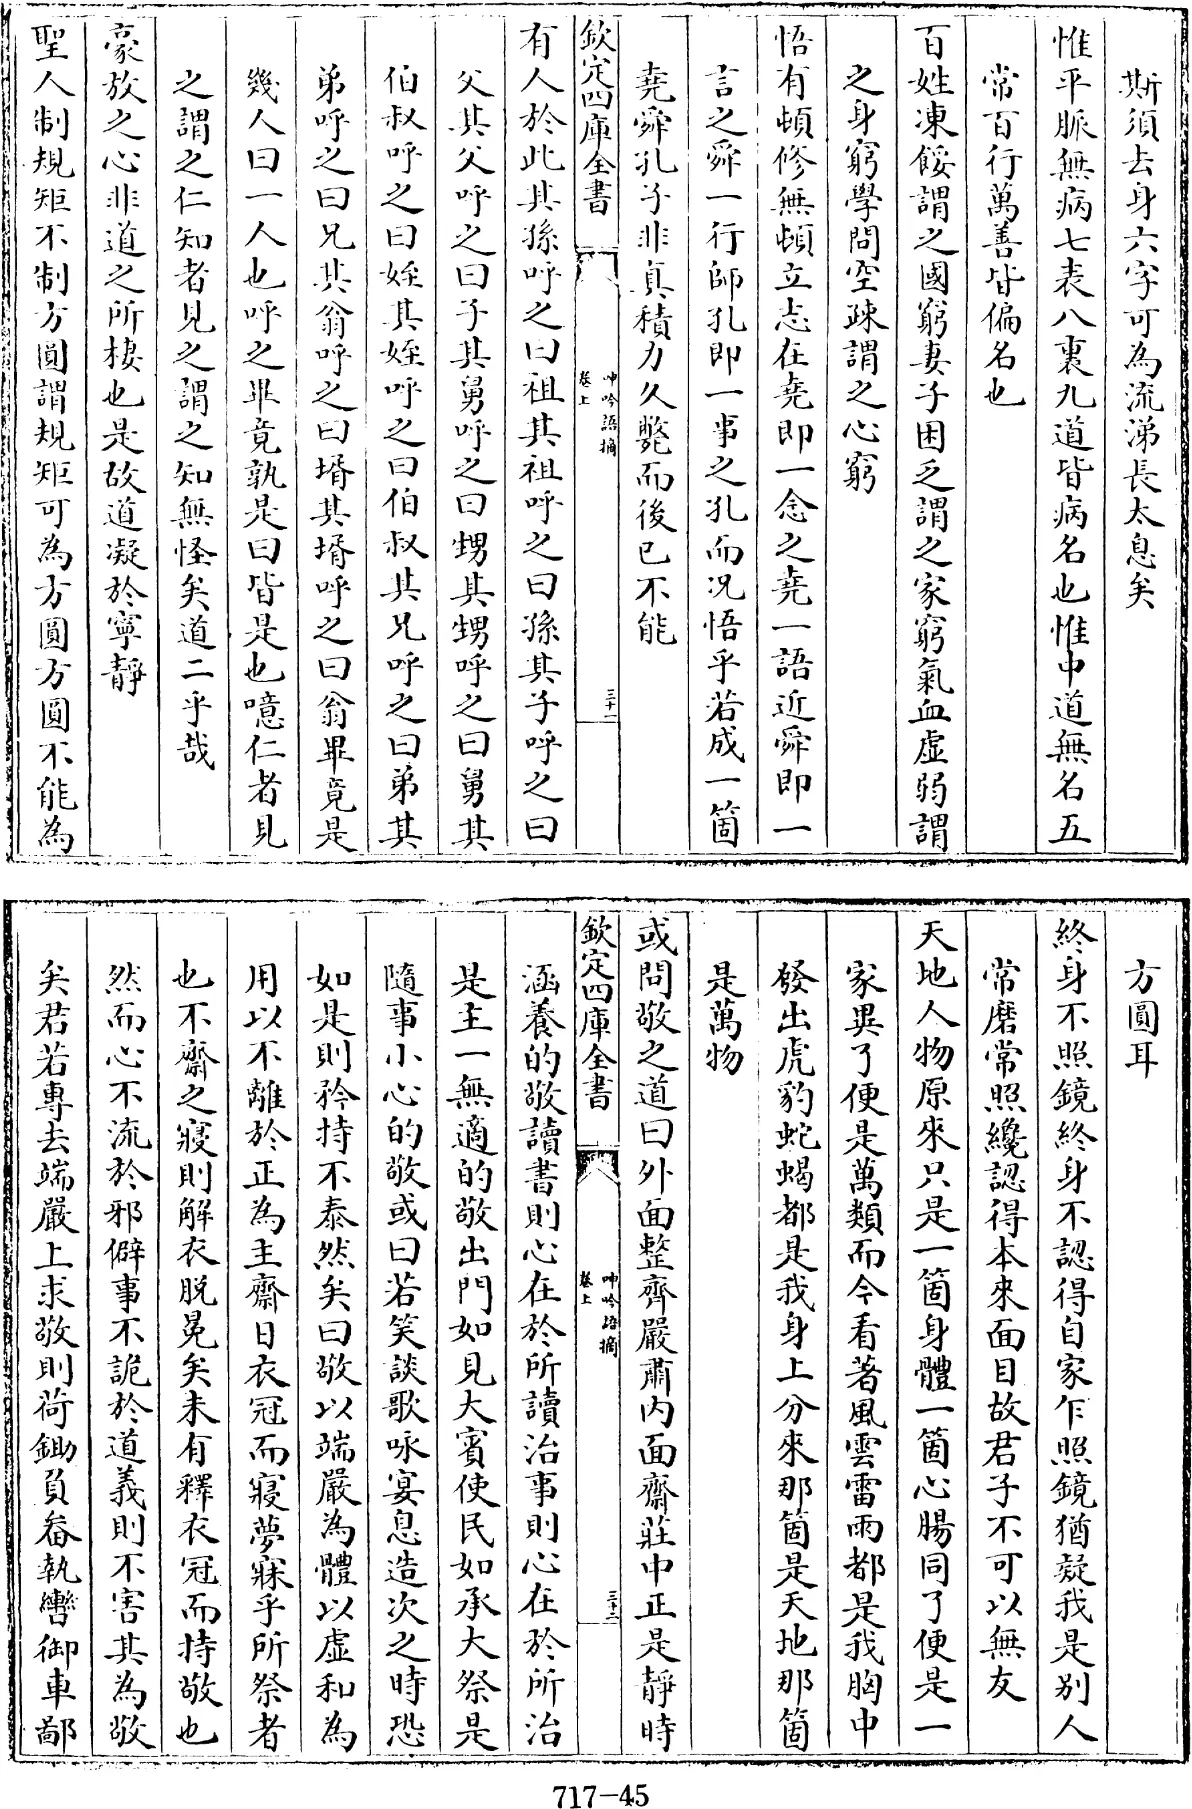 斯須去身六字可為流涕長太息矣
惟平脈無病七表八裏九道皆病名也惟中道無名五
常百行萬善皆偏名也
百姓凍餒謂之國窮妻子困乏謂之家窮氣血虛弱謂
之身窮學問空疎謂之心窮
悟有頓修無頓立志在堯即一念之堯一語近舜即一
言之舜一行師孔即一事之孔而况悟乎若成一箇
堯舜孔子非真積力久斃而後已不能
欽定四庫全書
呻吟語摘
卷上
三十一
有人於此其孫呼之曰祖其祖呼之曰孫其子呼之曰
父其父呼之曰子其舅呼之曰甥其甥呼之曰舅其
伯叔呼之曰姪其姪呼之曰伯叔其兄呼之曰弟其
弟呼之曰兄其翁呼之曰壻其壻呼之曰翁畢竟是
幾人曰一人也呼之畢竟孰是曰皆是也噫仁者見
之謂之仁知者見之謂之知無怪矣道二乎哉
豪放之心非道之所棲也是故道凝於寧靜
聖人制規矩不制方圓謂規矩可為方圓方圓不能為
方圓耳
終身不照鏡終身不認得自家乍照鏡猶疑我是别人
常磨常照纔認得本來面目故君子不可以無友
天地人物原來只是一箇身體一箇心腸同了便是一
家異了便是萬類而今看著風雲雷雨都是我胸中
發出虎豹蛇蝎都是我身上分來那箇是天地那箇
是萬物
或問敬之道曰外面整齊嚴肅内面齋莊中正是靜時
欽定四庫全書
呻吟語摘
卷上
三十二
涵養的敬讀書則心在於所讀治事則心在於所治
是主一無適的敬出門如見大賓使民如承大祭是
隨事小心的敬或曰若笑談歌咏宴息造次之時恐
如是則矜持不泰然矣曰敬以端嚴為體以虛和為
用以不離於正為主齋日衣冠而寢夢寐乎所祭者
也不齋之寢則解衣脱冕矣未有釋衣冠而持敬也
然而心不流於邪僻事不詭於道義則不害其為敬
矣君若專去端嚴上求敬則荷鋤負畚執轡御車鄙
717-45